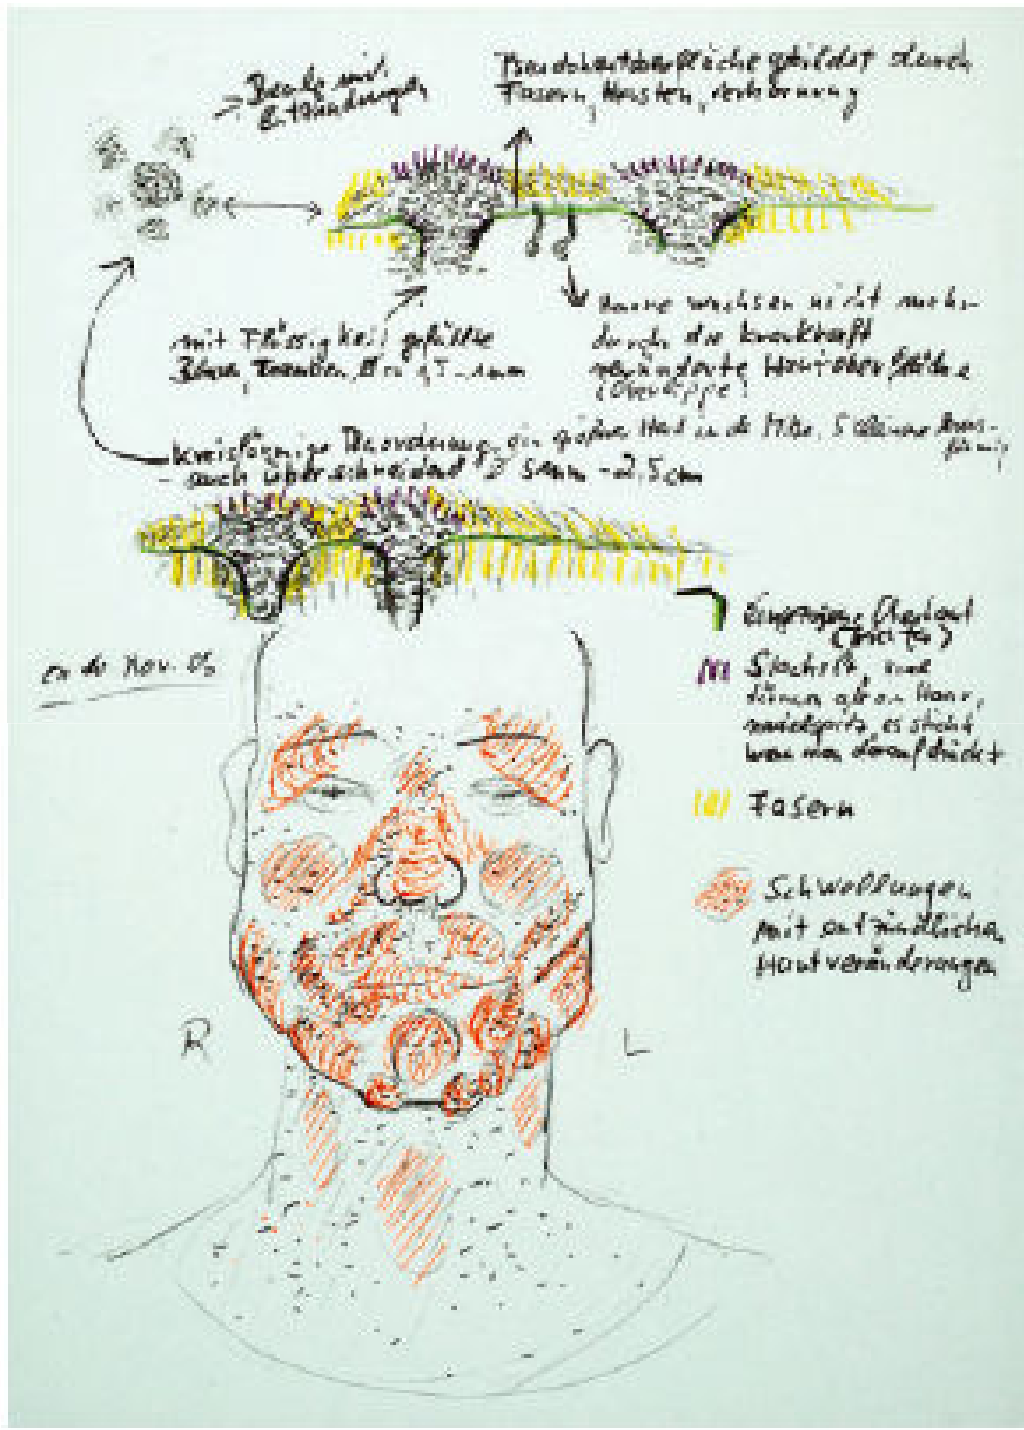 Beule mit
Entzündungen
Pseudohautoberfläche gebildet durch
Fasern, Krusten, Verhornung
mit Flüssigkeit gefüllte
Haare wachsen nicht mehr
durch die krankhaft
veränderte Hautoberfläche
kreisförmige Anordnung, ein in der Mitte, 5 kleinere
- auch überschneidend Ø 5mm - 2,5cm
Ende Nov. 05
Eingezogene Oberhaut
(Trichter)
Stacheln, sind
dünner als ein Haar,
nadelspitz, es sticht
wenn man darauf drückt
Fasern
Schwellungen
mit entzündlichen
Hautveränderungen
R
L